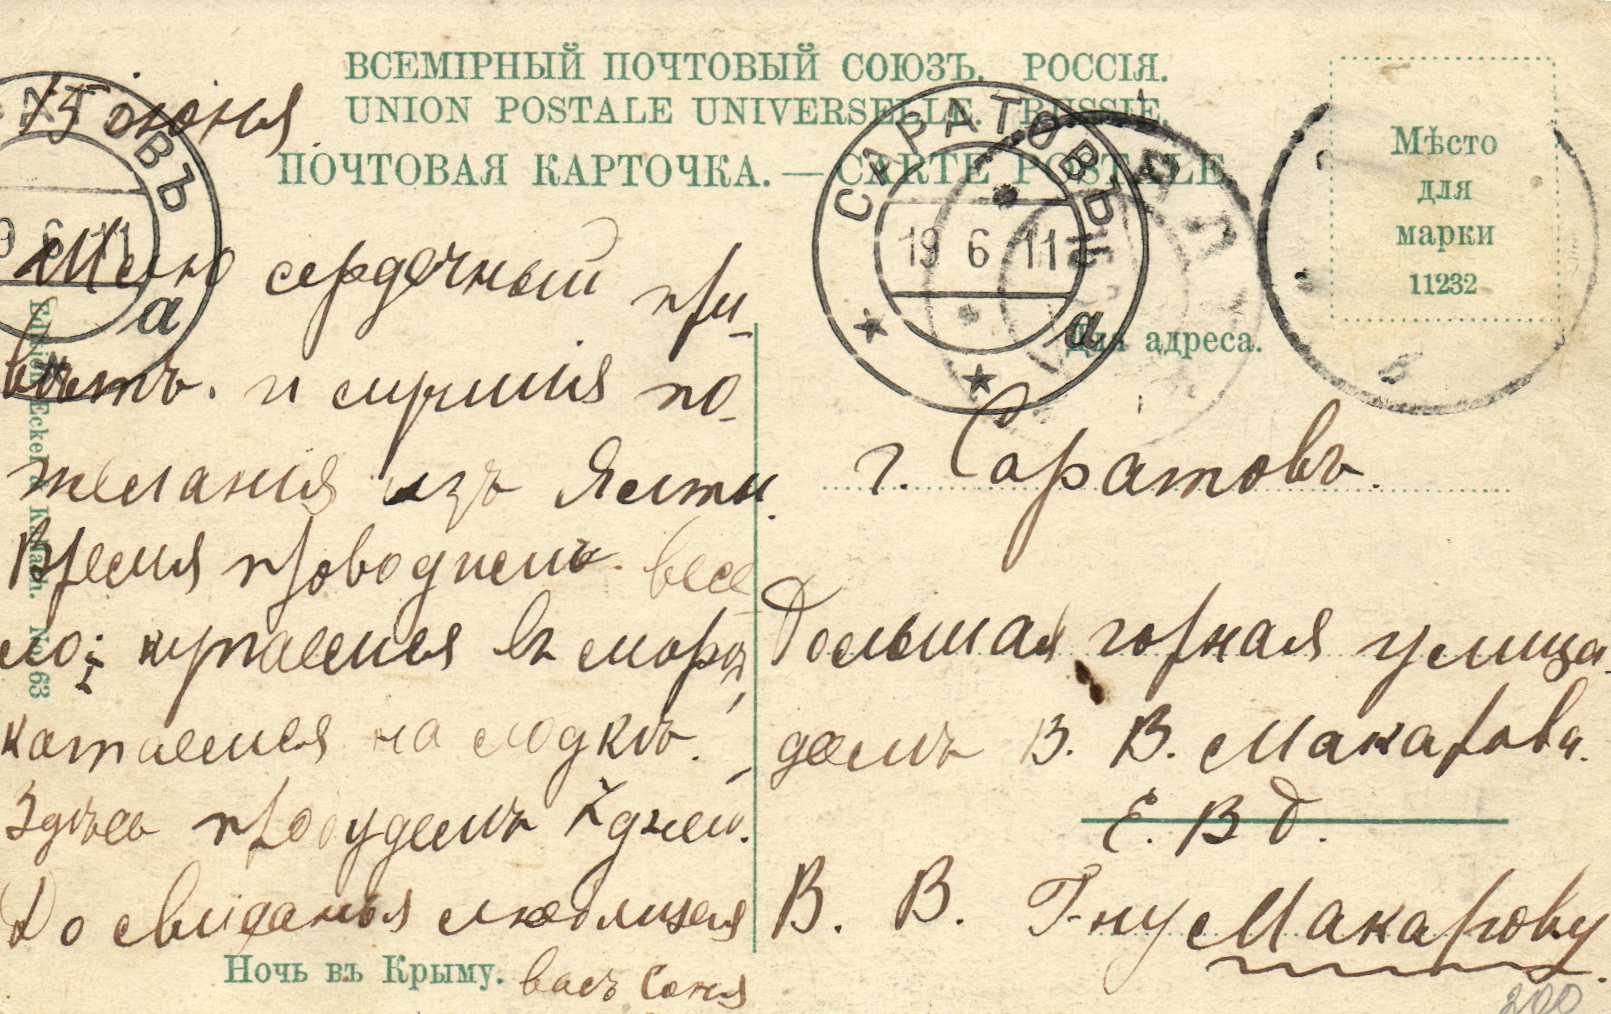 ВСЕМІРНЫЙ ПОЧТОВЫЙ СОЮЗЪ. РОССІЯ.
UNION POSTALE UNIVERSELLE. RUSSIE.
ПОЧТОВАЯ КАРТОЧКА. — CARTE POSTALE
Мѣсто
для
марки
11232
Для адреса.
САРАТОВЪ
19 6 11
а
15 іюня
Шлю сердечный при-
вѣтъ. и
желанія изъ Ялты.
Время проводимъ. весе-
ло; купаемся въ морѣ,
катаемся на лодкѣ.
Здѣсь пробудемъ 7 дней.
До свиданья любящая
васъ Соня
г. Саратовъ.
Большая горная улица
домъ В. В. Макарова.
Е. В Б.
В. В. Г-ну Макарову.
Ночь въ Крыму.
No. 63
200